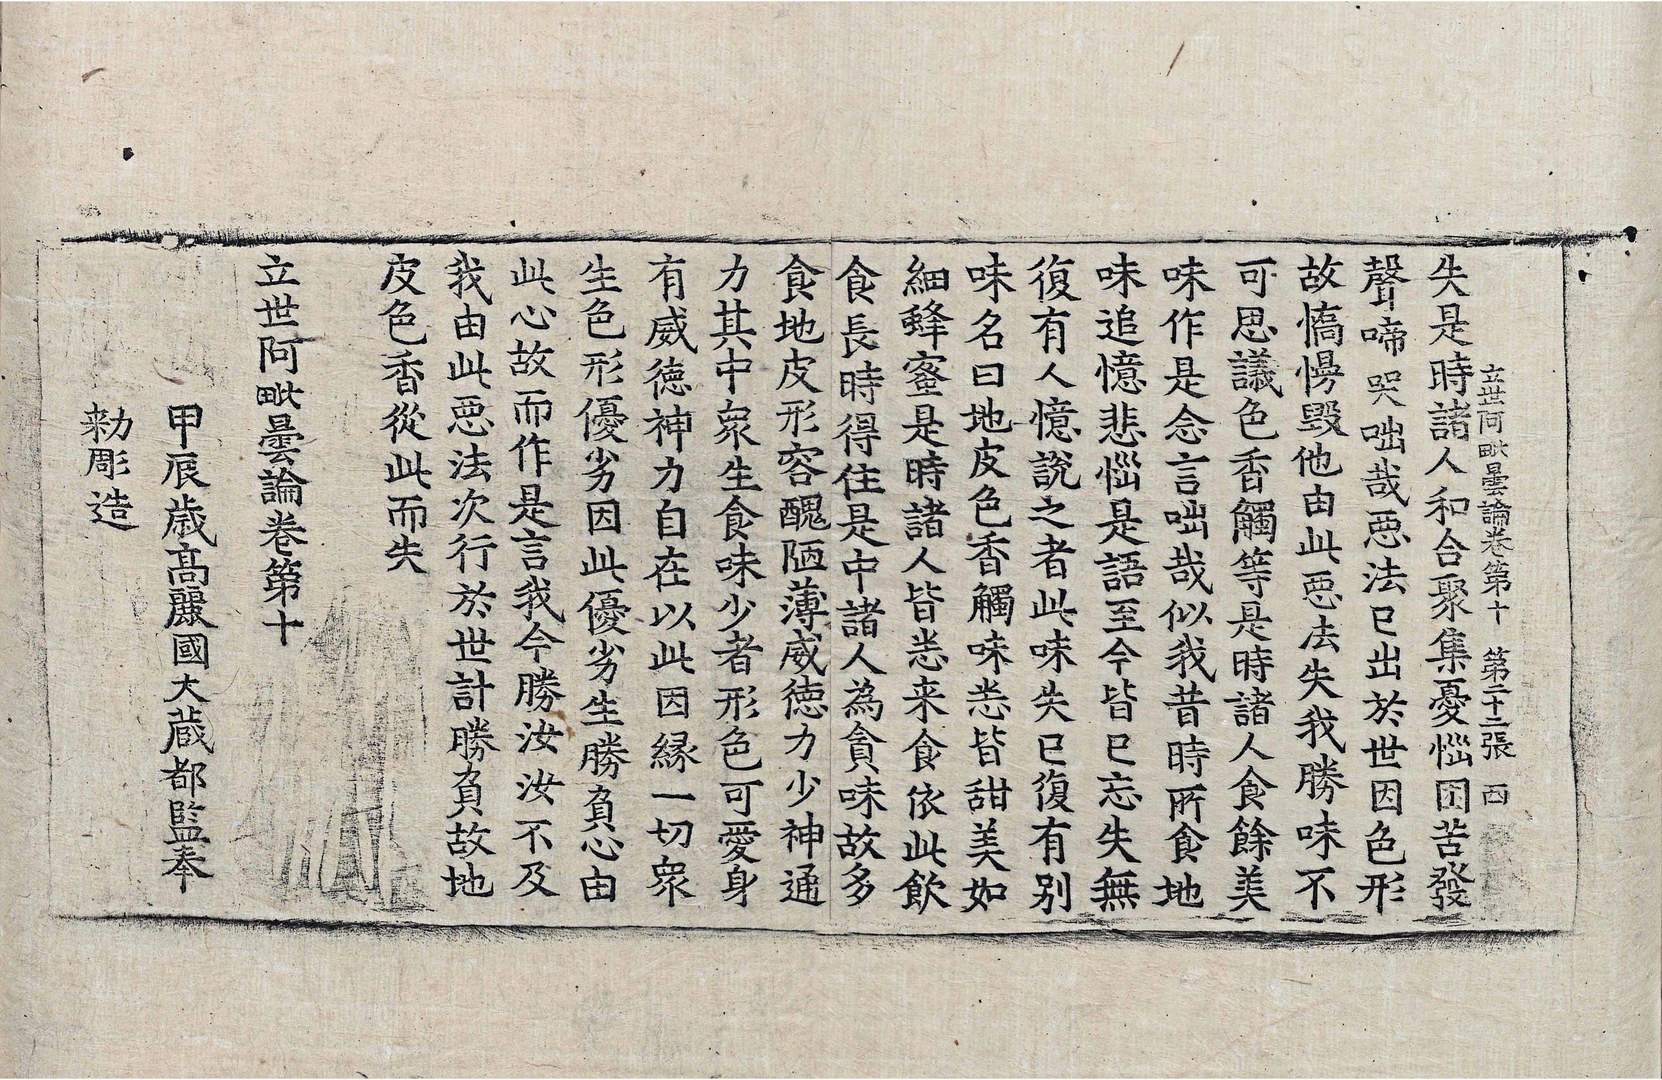 立世阿毗曇論卷第十　第二十二張　西
失是時諸人和合聚集憂惱困苦發
聲啼哭咄哉惡法已出於世因色形
故憍慢毀他由此惡法失我勝味不
可思議色香觸等是時諸人食餘美
味作是念言咄哉似我昔時所食地
味追憶悲惱是語至今皆已忘失無
復有人憶說之者此味失已復有別
味名曰地皮色香觸味悉皆甜美如
細蜂蜜是時諸人皆悉来食依此飲
食長時得住是中諸人為貪味故多
食地皮形容醜陋薄威德力少神通
力其中衆生食味少者形色可愛身
有威德神力自在以此因緣一切衆
生色形優劣因此優劣生勝負心由
此心故而作是言我今勝汝汝不及
我由此惡法次行於世計勝負故地
皮色香從此而失
立世阿毗曇論卷第十
甲辰歲高麗國大藏都監奉
勑彫造